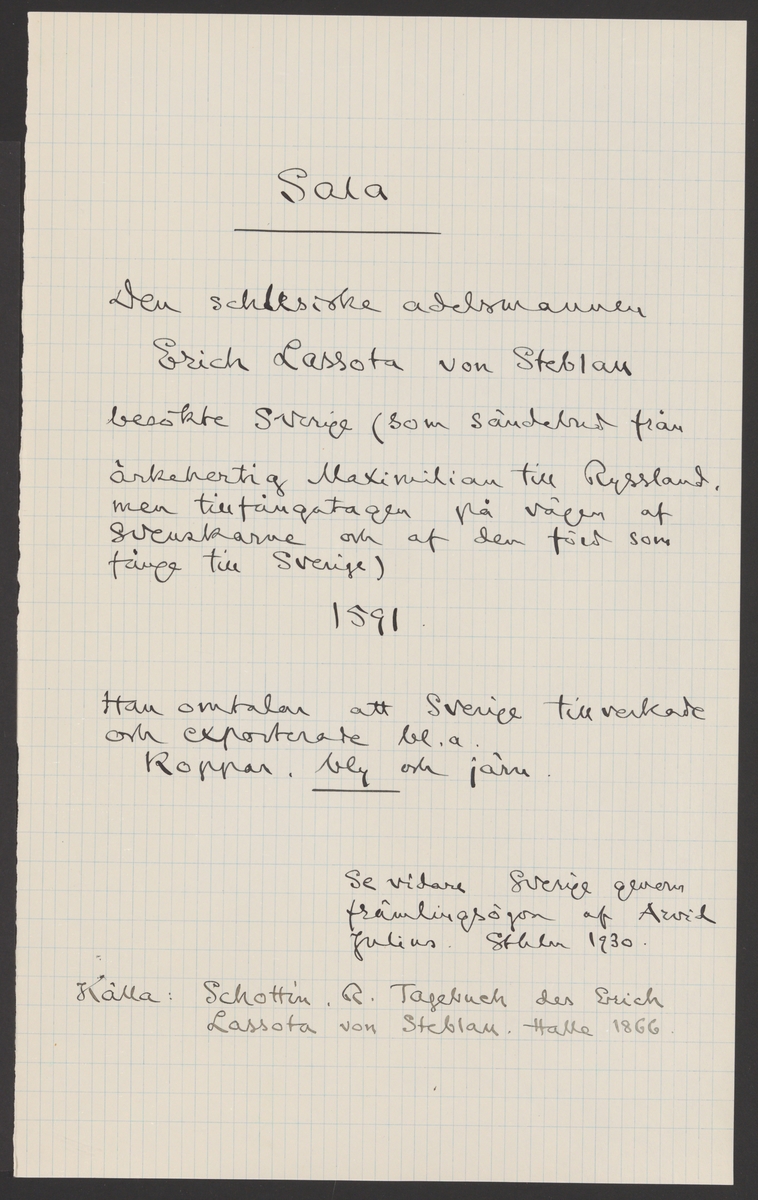 Sala
Den schlesiske adelsmannen
Erich Lassota von Steblau
besökte Sverige (som sändebud från
ärkehertig Maximilian till Ryssland,
men tillfångatagen på vägen af
Svenskarne och af dem förd som
fånge till Sverige)
1591.
Han omtalar att Sverige tillverkade
och exporterade bl.a.
Koppar, bly och järn.
Se vidare Sverige genom
främlingsögon af Arvid
Julius. Sthlm 1930.
Källa: Schottin, R. Tagebuch des Erich
Lassota von Steblau. Halle 1866.